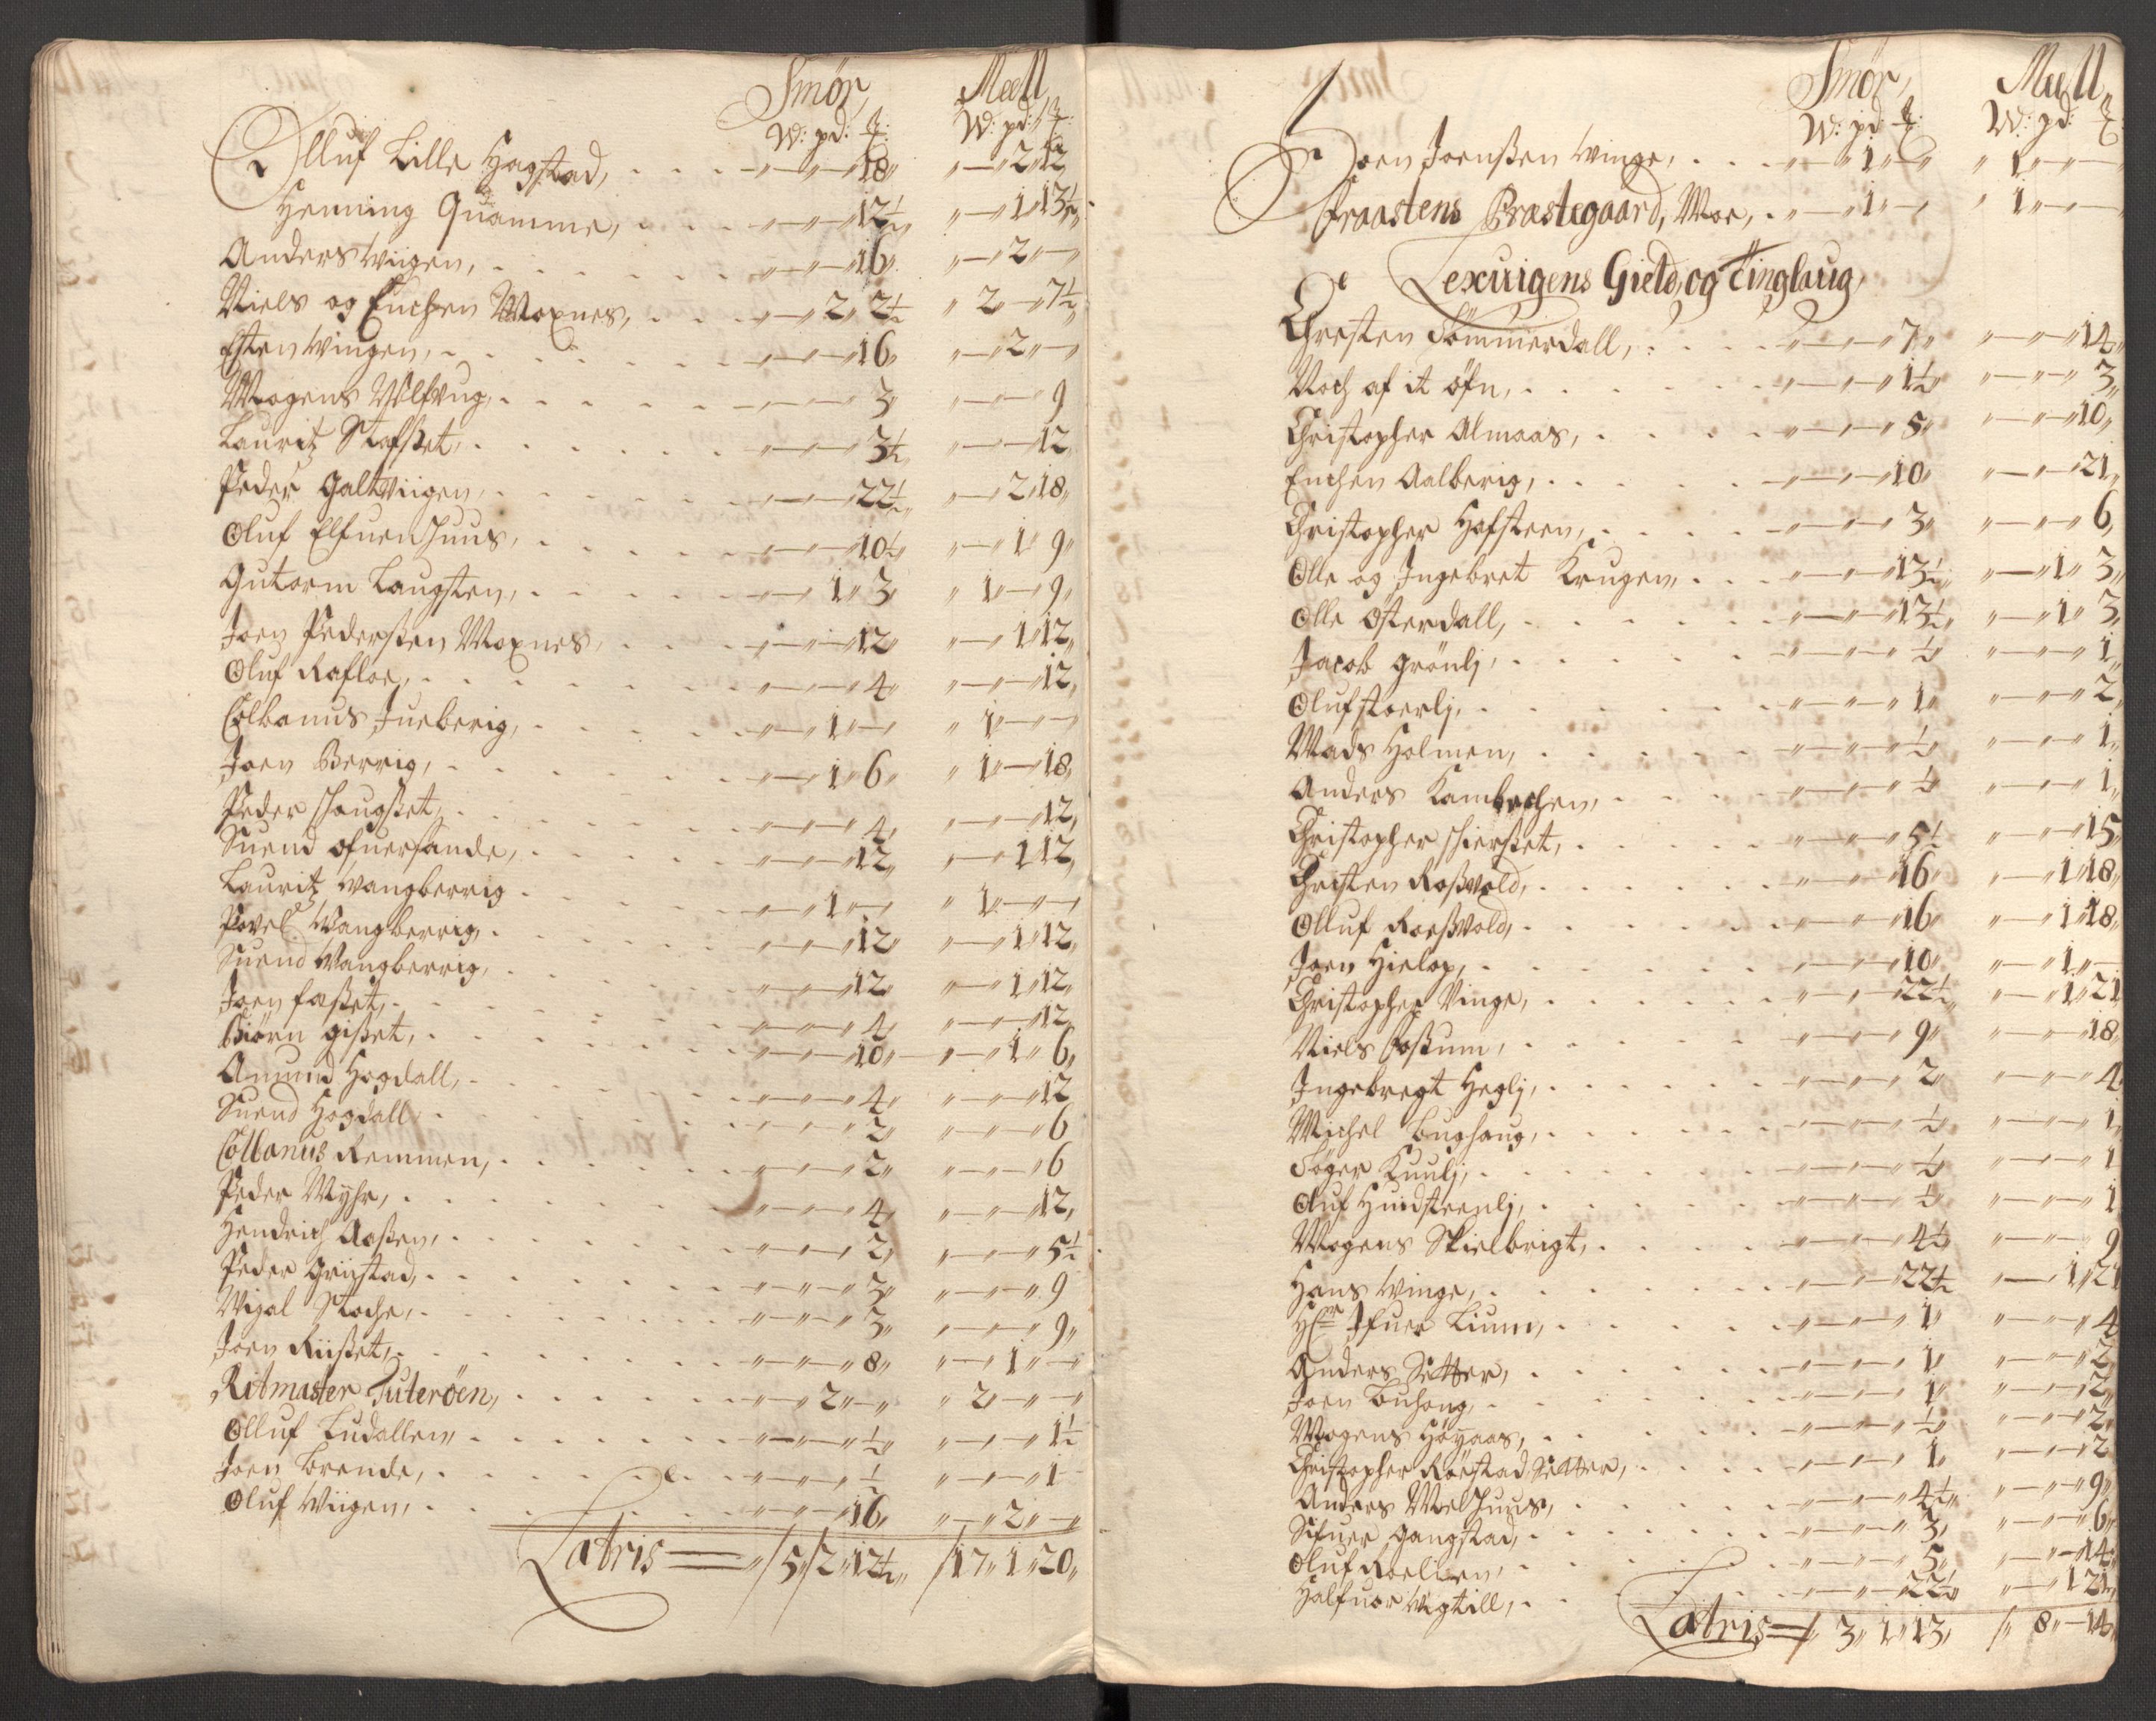 Smør, Meell
W: pd: ℔: W: pd: ℔:
Olluf Lille Hagstad, . . . „—„—„18„ „—„2„12
Henning Quamme, . . . „—„—„12½„ „—„1„13½„
Anders Wiigen, . . . „—„—„16„ „—„2„—„
Niels og Enchen Moxnes, . . . „—„2„2½ „2„—„7½
Esten Wingen, . . . „—„—„16„ „—„2„—„
Mogens Ulfvug, . . . „—„—„3„ „—„—„9
Lauritz Stafset, . . . „—„—„3½„ „—„—„12
Peder Galtviigen, . . . „—„—„22½„ „—„2„18„
Oluf Elfuenhuus, . . . „—„—„10½„ „—„1„9„
Gutorm Laugsten, . . . „—„1„3„ „1„—„9„
Joen Pederssen Moxnes, . . . „—„—„12„ „—„1„12„
Oluf Rafloe, . . . „—„—„4„ „—„—„12„
Colbanus Jueberig, . . . „—„1„—„ „1„—„—„
Joen Berrig, . . . „—„1„6„ „1„—„18„
Peder Hougset, . . . „—„—„4„ „—„—„12„
Suend Ofuersande, . . . „—„—„12„ „—„1„12„
Lauritz Wangberrig . . . „—„1„—„ „1„—„—„
Povel Wangberrig, . . . „—„—„12„ „—„1„12„
Suend Wangberrig, . . . „—„—„12„ „—„1„12„
Joen Fasset, . . . „—„—„4„ „—„—„12„
Biörn Gisset, . . . „—„—„10„ „—„1„6„
Amund Hogdall, . . . „—„—„4„ „—„—„12
Suend Hogdall . . . „—„—„2„ „—„—„6
Collanus Remmen, . . . „—„—„2„ „—„—„6
Peder Myhr, . . . „—„—„4„ „—„—„12„
Hendrich Aassen, . . . „—„—„2„ „—„—„5½
Peder Griistad, . . . „—„—„3„ „—„—„9
Wigal Stoche, . . . „—„—„3„ „—„—„9„
Joen Riisset, . . . „—„—„8„ „—„1„—„
Ritmaster Tuteröen, . . . „—„2„—„ „2„—„—„
Olluf Ludallen, . . . „—„—„½„ „—„—„1½
Joen Brende, . . . „—„—„½ „—„—„1
Oluf Wiigen, . . . „—„—„16„ „—„2„—„
Latris = „/5„/2„12½„ /17„1„20„
Smør, Meell
W: pd: ℔: W: pd: ℔
Joen Joenssen Winge, . . . „—„1„—„ „1„—„—
Fraastens Præstegaard, Moe, . „—„1„—„ „1„—„—
Lexuigens Gield, og Tinglaug,
Chresten Sömmerdall, . . . „—„—„7„ „—„—„14„
Noch af it öfn, . . . „—„—„1½„ „—„—„3„
Christopher Almaas, . . . „—„—„5„ „—„—„10„
Enchen Aalberig, . . . „—„—„10„ „—„—„21„
Christopher Hafsteen, . . . „—„—„3„ „—„—„6„
Olle og Ingebret Krugen, . . . „—„—„13½„ „—„1„3„
Olle Österdall, . . . „—„—„13½„ „—„1„3„
Jacob Grönlj, . . . „—„—„½„ „—„—„1„
Oluf Stoerlj, . . . „—„—„1„ „—„—„2„
Mads Holmen, . . . „—„—„½„ „—„—„1„
Anders Kambechen, . . . „—„—„½„ „—„—„1„
Christopher Hierset, . . . „—„—„5½ „—„—„15„
Christen Rosvold, . . . „—„—„16„ „—„1„18„
Olluf Rosvold, . . . „—„—„16„ „—„1„18„
Joen Hielop, . . . „—„—„10„ „—„1„—
Christopher Vinge, . . . „—„—„22½„ „—„1„21
Niels Fossum, . . . „—„—„9„ „—„—„18„
Ingebregt Heglj, . . . „—„—„2„ „—„—„4
Michel Bughaug, . . . „—„—„½„ „—„—„1„
Töger Kuulj, . . . „—„—„½„ „—„—„1
Oluf Hundsteenlj, . . . „—„—„½„ „—„—„1
Mogens Skielbrigt, . . . „—„—„4½„ „—„—„9
Hans Winge, . . . „—„—„22½ „—„1„21
Hr Ifuer Lium, . . . „—„—„1„ „—„—„4
Anders Sætter, . . . „—„—„1„ „—„—„2„
Joen Buhaug, . . . „—„—„1„ „—„—„2„
Mogens Höyaas, . . . „—„—„½„ „—„—„2„
Christopher Röestad Sætter, . . . „—„—„1„ „—„—„2
Anders Melhuus, . . . „—„—„4½„ „—„—„9„
Sifuer Gangstad, . . . „—„—„3„ „—„—„6„
Oluf Roelien, . . . „—„—„5„ „—„—„14„
Halfuor Wigtill, . . . „—„—„22½„ „—„1„21„
Latris = /„3„1„13„ /„8„—„14„